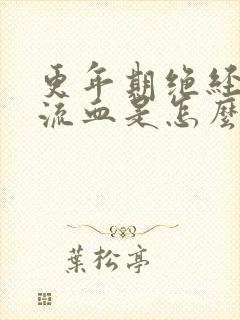 更年期绝经
流血是怎麼
葉松亭